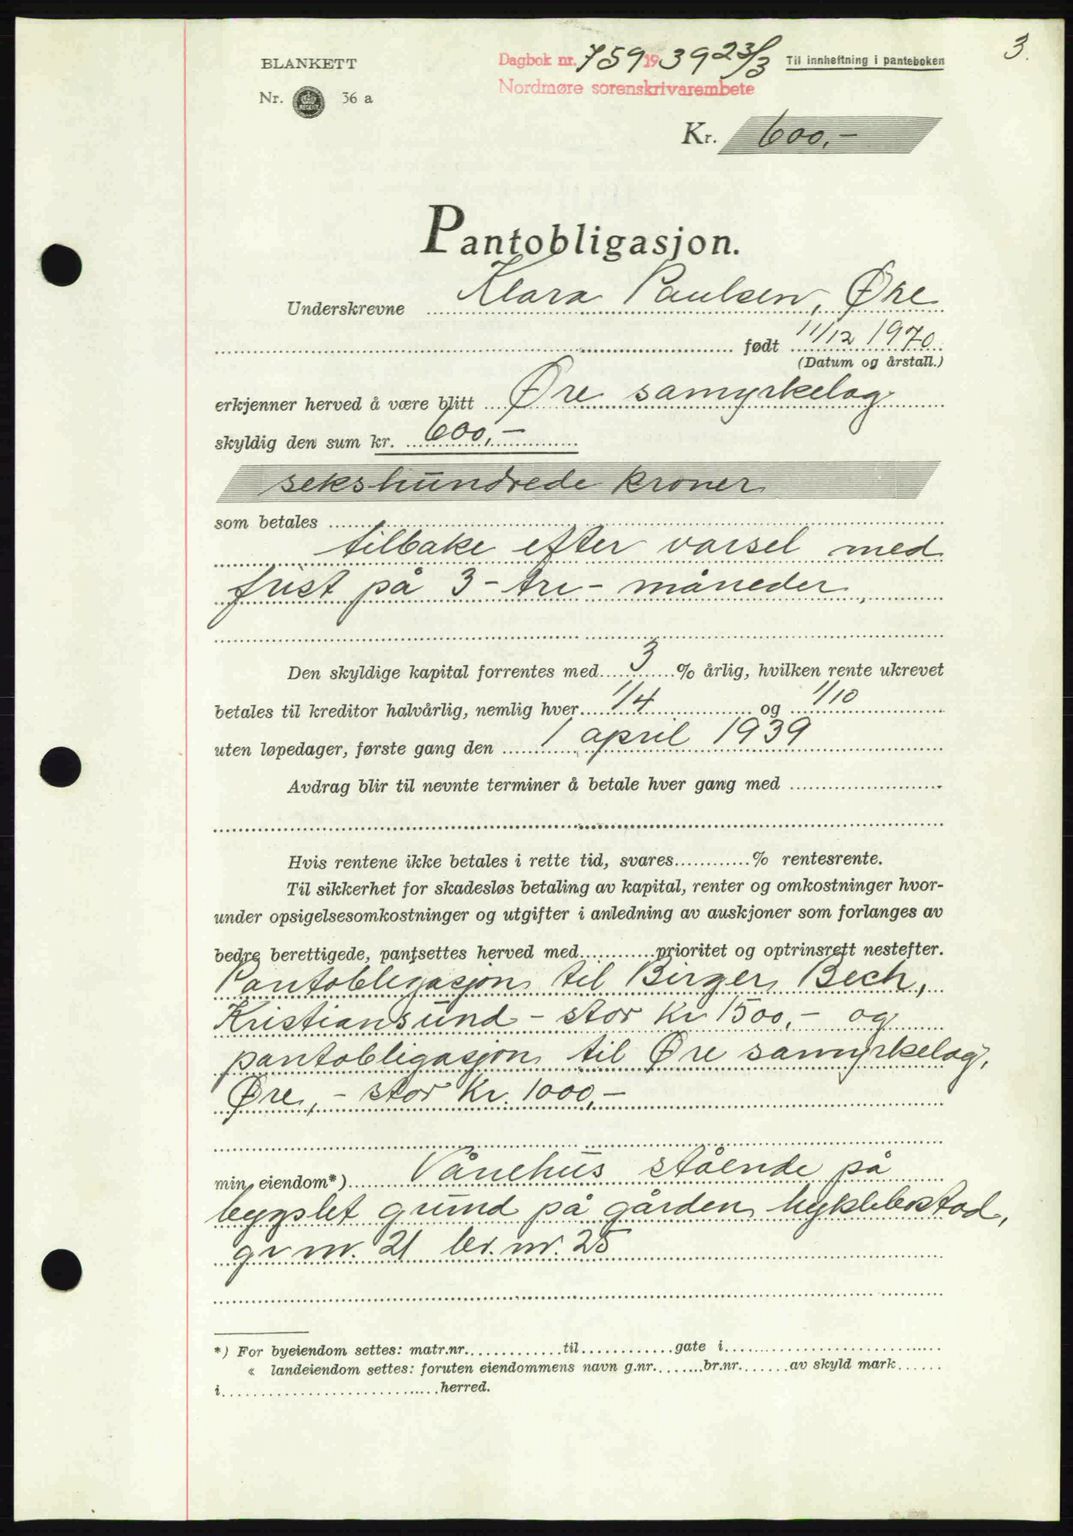 3.
BLANKETT
Nr. 36 a
Dagbok nr. 759 1939 23/3
Nordmøre sorenskrivarembete
Til innheftning i panteboken
Kr. 600,-
Pantobligasjon.
Underskrevne Klara Paulsen, Øre
født 11/12 1970
(Datum og årstall.)
erkjenner herved å være blitt Øre samyrkelag
skyldig den sum kr. 600,-
sekshundrede kroner
som betales
tilbake efter varsel med
frist på 3-tre-måneder,
Den skyldige kapital forrentes med 3 % årlig, hvilken rente ukrevet
betales til kreditor halvårlig, nemlig hver 1/4 og 1/10
uten løpedager, første gang den 1 april 1939
Avdrag blir til nevnte terminer å betale hver gang med
Hvis rentene ikke betales i rette tid, svares % rentesrente.
Til sikkerhet for skadesløs betaling av kapital, renter og omkostninger hvor-
under opsigelsesomkostninger og utgifter i anledning av auksjoner som forlanges av
bedre berettigede, pantsettes herved med prioritet og optrinsrett nestefter.
Pantobligasjon til Birger Bech,
Kristiansund - stor Kr 1500,- og
pantobligasjon til Øre samyrkelag,
Øre, - stor Kr. 1000,-
min eiendom*) Vånehus stående på
bygslet grund på gården
gr nr. 21 br. nr. 25
*) For byeiendom settes: matr.nr. til gate i
« landeiendom settes: foruten eiendommens navn g.nr. br.nr. av skyld mark
i herred.